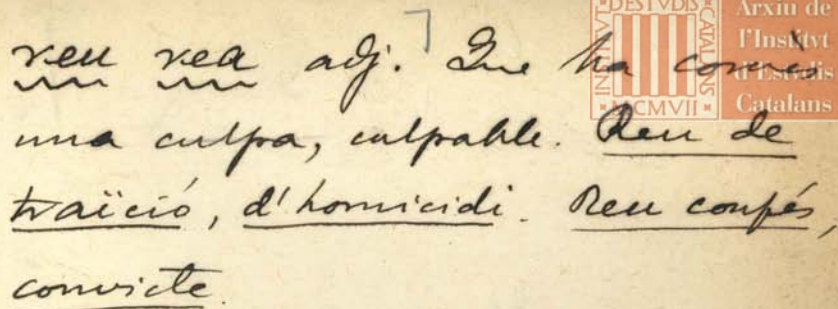 reu rea adj. Que ha comès
una culpa, culpable. Reu de
traïció, d'homicidi. Reu confés,
convicte.
INSTITVT D'ESTVDIS CATALANS
MCMVII
Arxiu de
l'Institvt
d'Estudis
Catalans